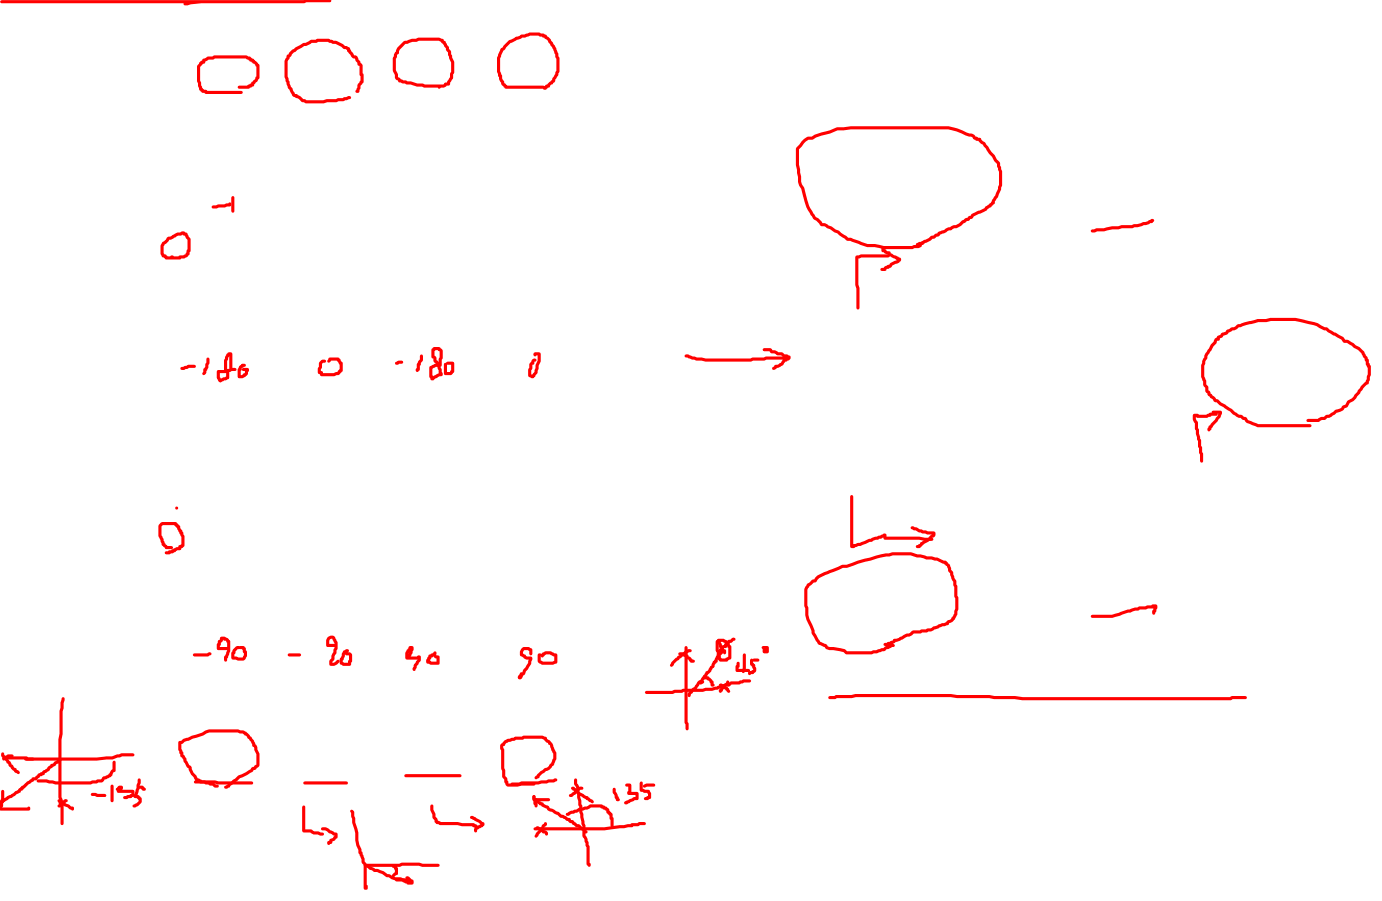 -1
-180 0 -180 0
-90 -90 90 90
45°
-135
135